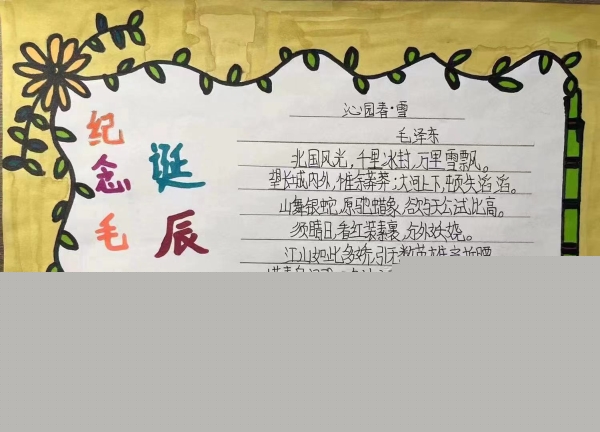 纪念毛
诞辰
沁园春·雪
毛泽东
北国风光,千里冰封,万里雪飘。
望长城内外,惟余莽莽;大河上下,顿失滔滔。
山舞银蛇,原驰蜡象,欲与天公试比高。
须晴日,看红装素裹,分外妖娆。
江山如此多娇,引无数英雄竞折腰